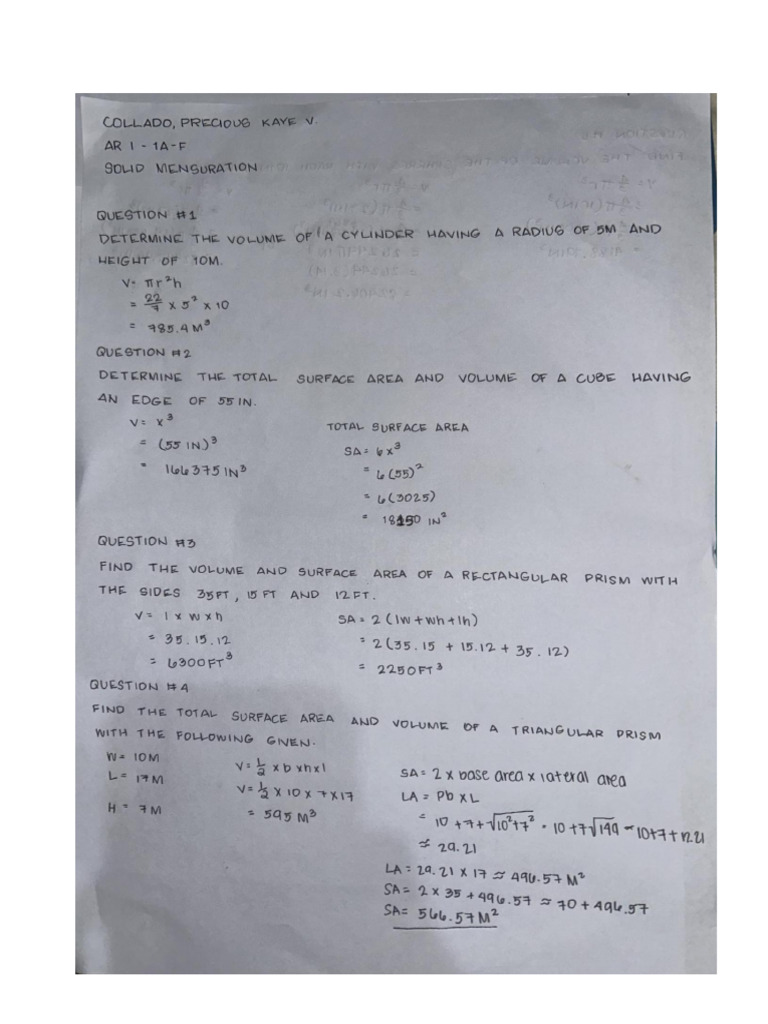 COLLADO, PRECIOUS KAYE V.
AR 1 - 1A-F
SOLID MENSURATION
QUESTION #1
DETERMINE THE VOLUME OF A CYLINDER HAVING A RADIUS OF 5M AND
HEIGHT OF 10M.
V= πr²h
= 22/7 x 5² x 10
= 785.4 M³
QUESTION #2
DETERMINE THE TOTAL SURFACE AREA AND VOLUME OF A CUBE HAVING
AN EDGE OF 55 IN.
V= x³
= (55 IN.)³
= 166375 IN³
TOTAL SURFACE AREA
SA= 6x³
= 6(55)²
= 6(3025)
= 18150 IN²
QUESTION #3
FIND THE VOLUME AND SURFACE AREA OF A RECTANGULAR PRISM WITH
THE SIDES 35FT, 15 FT AND 12FT.
V= l x w x h
= 35.15.12
= 6300FT³
SA= 2 (lw+wh+lh)
= 2(35.15 + 15.12 + 35.12)
= 2250FT³
QUESTION #4
FIND THE TOTAL SURFACE AREA AND VOLUME OF A TRIANGULAR PRISM
WITH THE FOLLOWING GIVEN.
W= 10M
L= 17M
H= 7M
V= 1/2 x b x h x l
V= 1/2 x 10 x 7 x 17
= 595 M³
SA= 2 x base area x lateral area
LA= Pb x L
= 10+7+√10²+7² = 10+7√149 = 10+7+12.21
≈ 29.21
LA= 29.21 x 17 ≈ 496.57 M²
SA= 2 x 35 + 496.57 ≈ 70 + 496.57
SA= 566.57M²